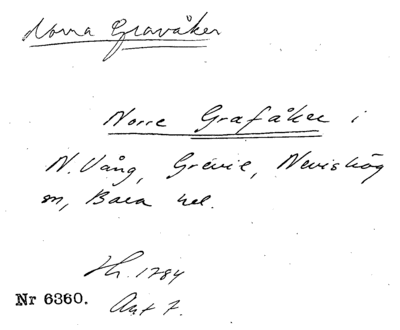 Norra Gravåker
Norre Grafåker i
N. Vång, Grevie, Nevishög
sn, Bara hd.
Hh. 1784
Nr 6360. Akt 7.